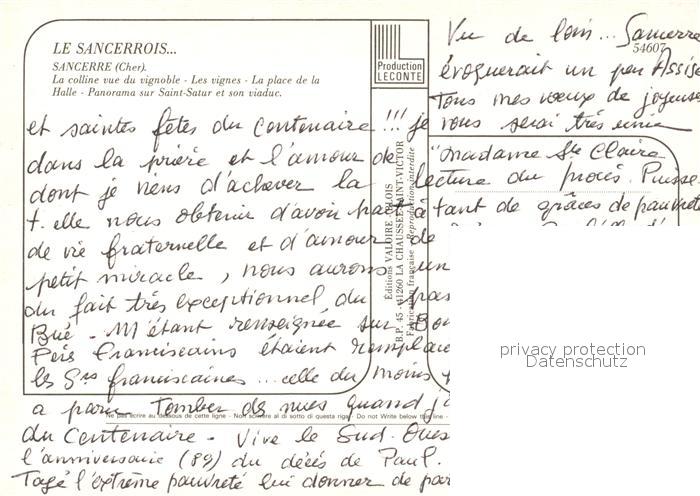 LE SANCERROIS...
SANCERRE (Cher).
La colline vue du vignoble - Les vignes - La place de la
Halle - Panorama sur Saint-Satur et son viaduc.
Production
LECONTE
54607
Éditions VALOIRE
B.P. 45 - 41260 LA CHAUSSÉE SAINT-VICTOR
Fabrication française - Reproduction interdite
Vu de loin... Sancerre
évoquerait un peu Assise
Tous mes vœux de joyeuses
et saintes fêtes du centenaire !!! je vous serai très unie
dans la prière et l'amour de "Madame Ste Claire
dont je viens d'achever la lecture du procès. Puisse
t. elle nous obtenir d'avoir part à tant de grâces de pauvreté
de vie fraternelle et d'amour de
petit miracle, nous aurons un
du fait très exceptionnel du pas
Bué. M'étant renseignée sur Bou
Père Franciscains étaient remplacé
les Srs franciscaines... celle du moins
a paru tomber des nues quand j
Ne pas écrire au dessous de cette ligne - Non scrivere al di sotto di questa riga - Do not Write below this line -
du Centenaire - Vive le Sud. Oues
l'anniversaire (89) du décès de Paul.
Tagé l'extrême pauvreté lui donner de par
privacy protection
Datenschutz